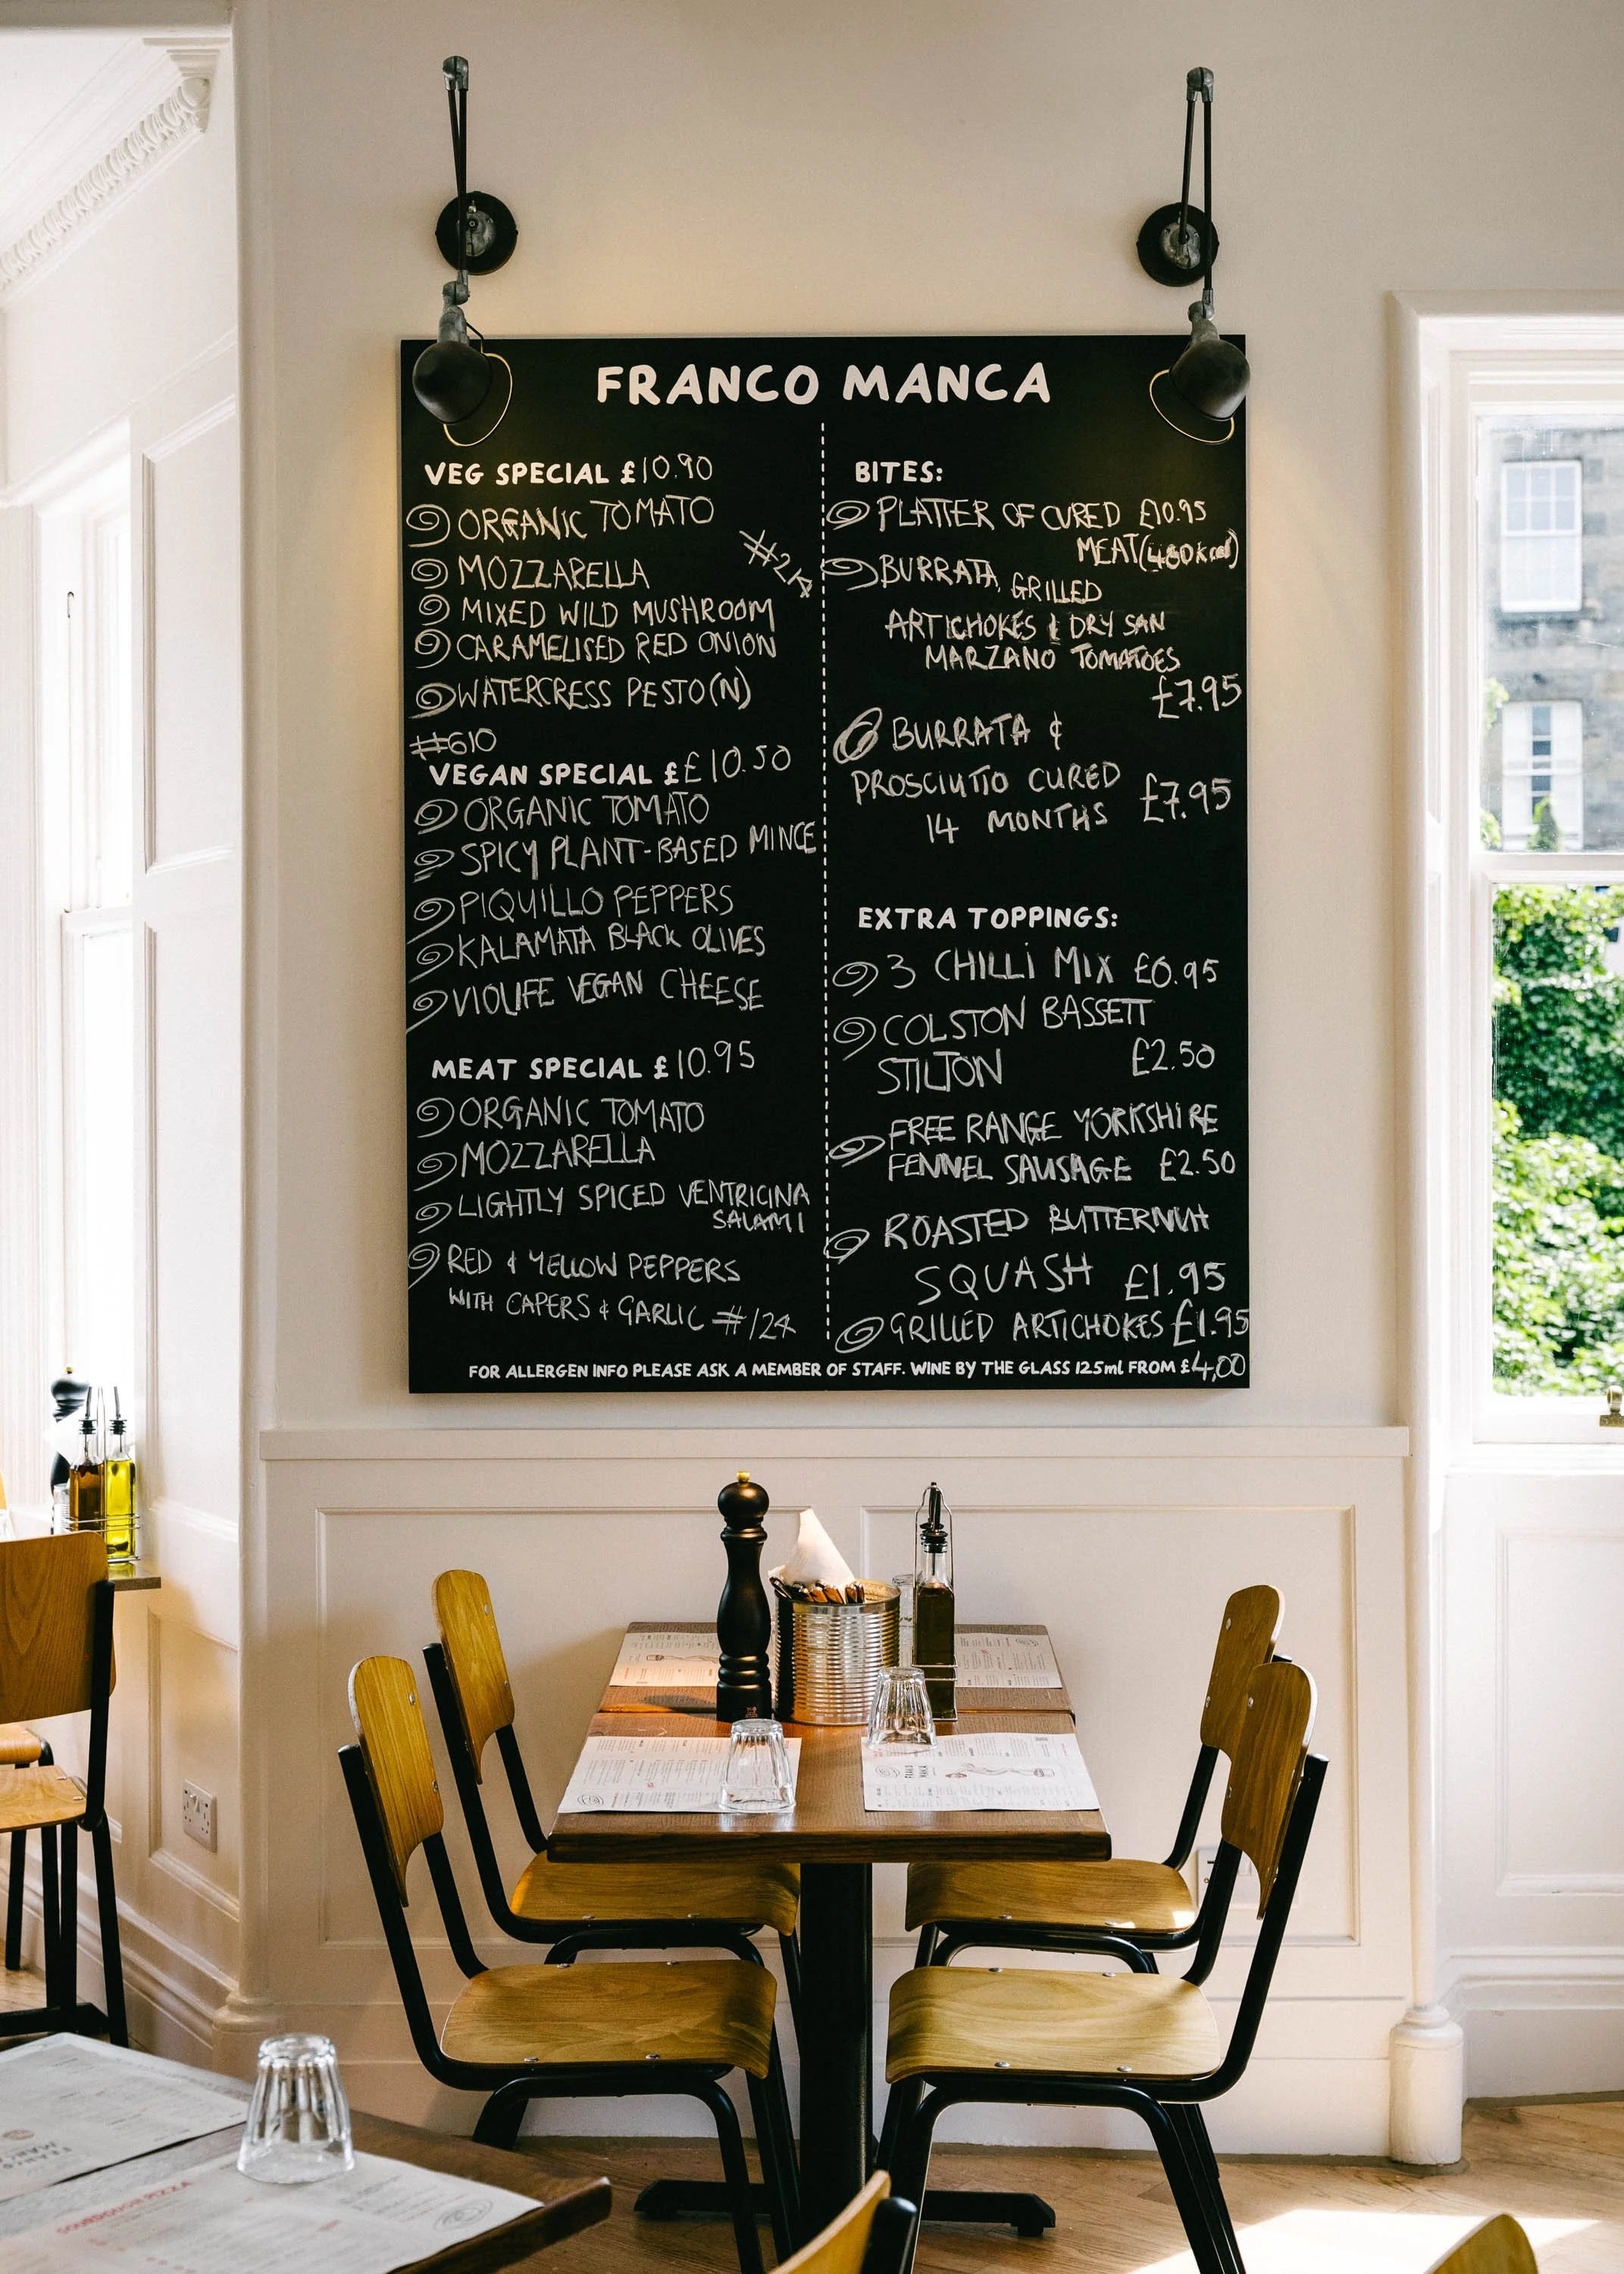 FRANCO MANCA
VEG SPECIAL £10.90
ORGANIC TOMATO
MOZZARELLA
#214
MIXED WILD MUSHROOM
CARAMELISED RED ONION
WATERCRESS PESTO(N)
#610
VEGAN SPECIAL ££10.50
ORGANIC TOMATO
SPICY PLANT-BASED MINCE
PIQUILLO PEPPERS
KALAMATA BLACK OLIVES
VIOLIFE VEGAN CHEESE
MEAT SPECIAL £10.95
ORGANIC TOMATO
MOZZARELLA
LIGHTLY SPICED VENTRICINA
SALAMI
RED & YELLOW PEPPERS
WITH CAPERS & GARLIC #124
BITES:
PLATTER OF CURED £10.95
MEAT(480kcal)
BURRATA, GRILLED
ARTICHOKES & DRY SAN
MARZANO TOMATOES
£7.95
BURRATA &
PROSCIUTTO CURED
14 MONTHS £7.95
EXTRA TOPPINGS:
3 CHILLI MIX £0.95
COLSTON BASSETT
STILTON £2.50
FREE RANGE YORKSHIRE
FENNEL SAUSAGE £2.50
ROASTED BUTTERNUT
SQUASH £1.95
GRILLED ARTICHOKES £1.95
FOR ALLERGEN INFO PLEASE ASK A MEMBER OF STAFF. WINE BY THE GLASS 125ml FROM £4,00
SOURDOUGH PIZZA